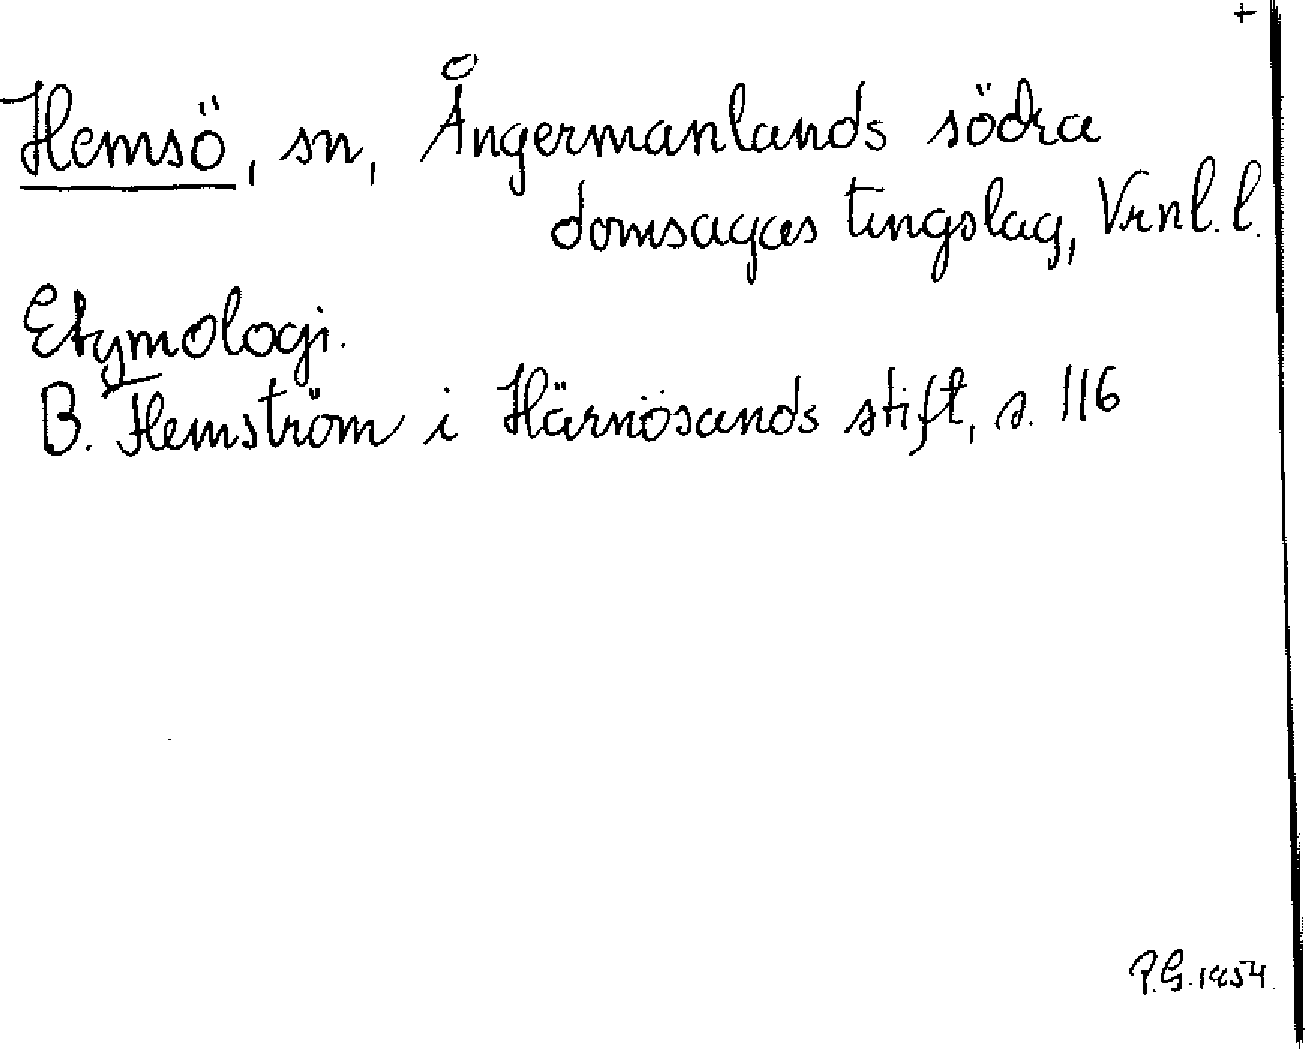 +
Hemsö, sn, Ångermanlands södra
domsagas tingslag, Vrnl. l.
Etymologi.
B. Hemström i Härnösands stift, s. 116
P.G. 1954.